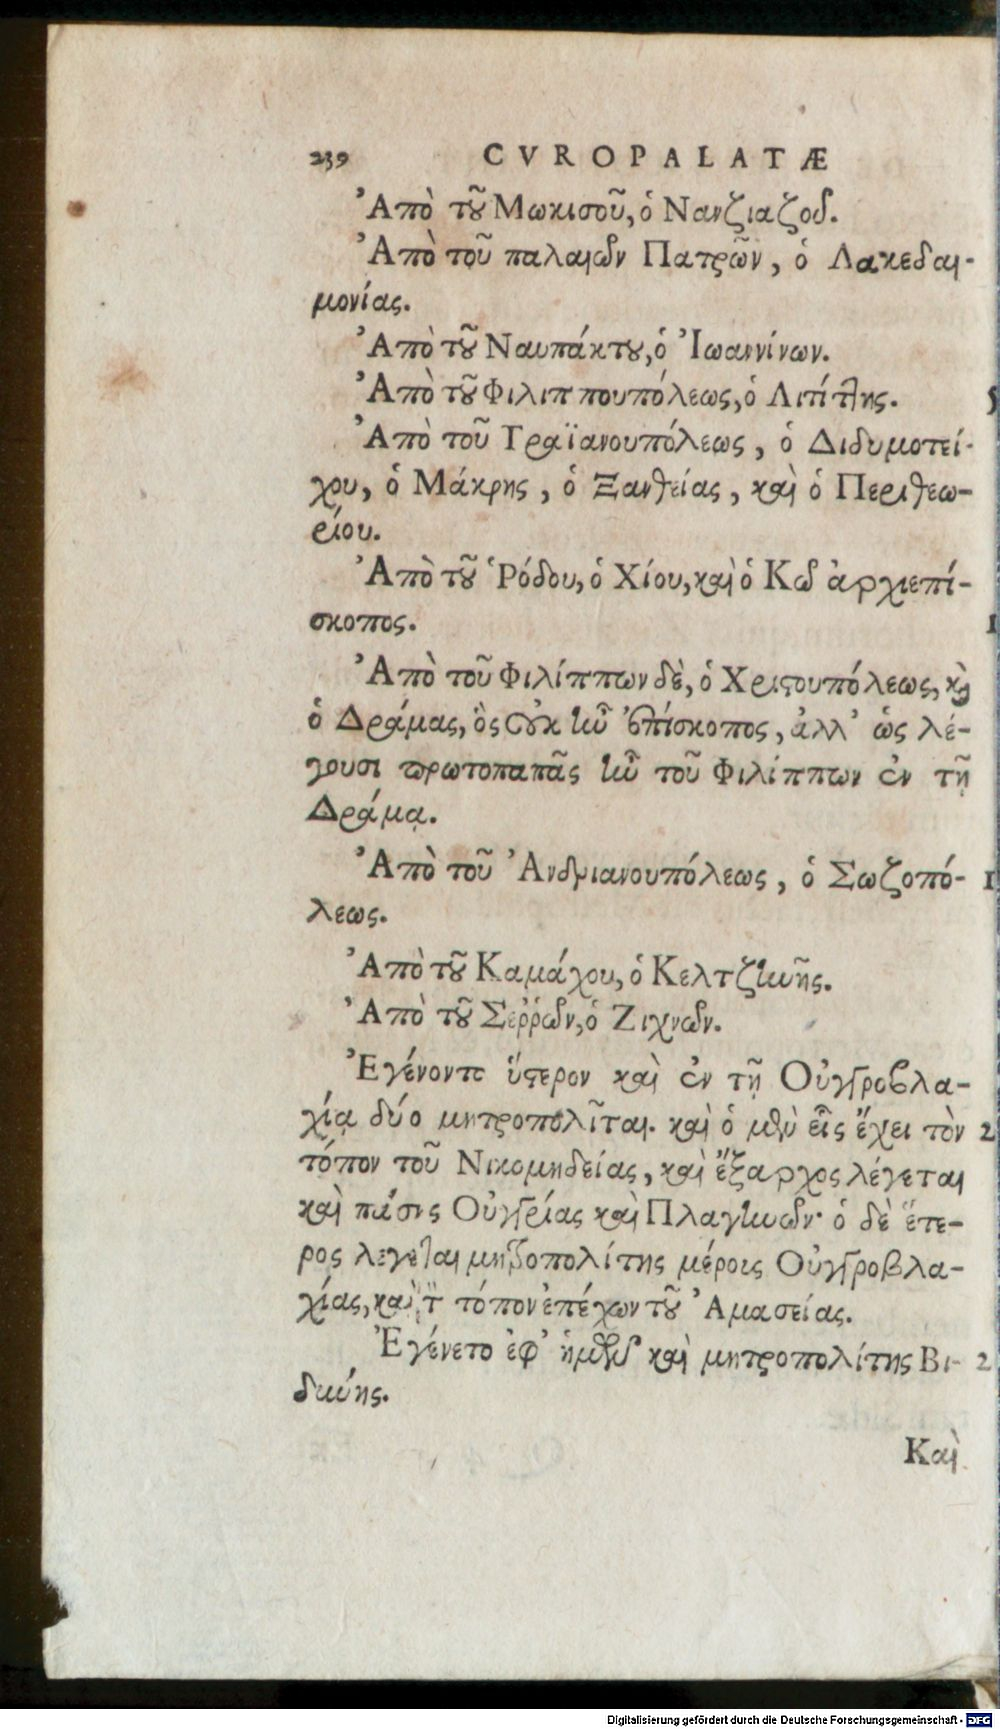 239 CVROPALATÆ
Ἀπὸ τοῦ Μωκισοῦ, ὁ Νανζιαζοῦ.
Ἀπὸ τοῦ παλαιῶν Πατρῶν, ὁ Λακεδαι-
μονίας.
Ἀπὸ τοῦ Ναυπάκτου, ὁ Ἰωαννίνων.
Ἀπὸ τοῦ Φιλιππουπόλεως, ὁ Λιτίτζης.
5
Ἀπὸ τοῦ Τραϊανουπόλεως, ὁ Διδυμοτεί-
χου, ὁ Μάκρης, ὁ Ξανθείας, καὶ ὁ Περιθεω-
ρίου.
Ἀπὸ τοῦ Ῥόδου, ὁ Χίου, καὶ ὁ Κῶ ἀρχιεπί-
σκοπος.
1
Ἀπὸ τοῦ Φιλίππων δὲ, ὁ Χριστουπόλεως, καὶ
ὁ Δράμας, ὃς οὐκ ἦν ἐπίσκοπος, ἀλλ’ ὡς λέ-
γουσι πρωτοπαπᾶς ἦν τοῦ Φιλίππων ἐν τῇ
Δράμᾳ.
Ἀπὸ τοῦ Ἀνδριανουπόλεως, ὁ Σωζοπό-
1
λεως.
Ἀπὸ τοῦ Καμάχου, ὁ Κελτζηνῆς.
Ἀπὸ τοῦ Σεῤῥῶν, ὁ Ζιχνῶν.
Ἐγένοντο ὕστερον καὶ ἐν τῇ Οὐγγροβλα-
χίᾳ δύο μητροπολῖται. καὶ ὁ μὲν εἷς ἔχει τὸν
2
τόπον τοῦ Νικομηδείας, καὶ ἔξαρχος λέγεται
καὶ πάσης Οὐγγρίας καὶ Πλαγηνῶν· ὁ δὲ ἕτε-
ρος λέγεται μητροπολίτης μέρους Οὐγγροβλα-
χίας, καὶ τὸν τόπον ἐπέχων τοῦ Ἀμασείας.
Ἐγένετο ἐφ’ ἡμῶν καὶ μητροπολίτης Βι-
2
δύνης.
Καὶ
Digitalisierung gefördert durch die Deutsche Forschungsgemeinschaft - DFG